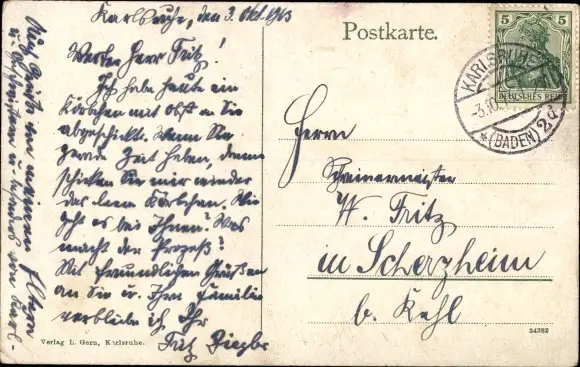 Karlsruhe, den 3. Okt. 1913
Werter Herr Fritz!
Ich habe heute ein
Körbchen mit Obst an Sie
abgeschickt. Wenn Sie
gerade Zeit haben, dann
schicken Sie mir wieder
das leere Körbchen. Wie
geht es bei Ihnen? Was
macht der Prozeß?
Mit freundlichen Grüßen
an Sie u. Ihre Familie
verbleibe ich Ihr
Fritz
Viele Grüße von meinen Eltern
u. Geschwistern u. besonders von Karl
Verlag L. Gern, Karlsruhe.
Postkarte.
5 5
DEUTSCHES REICH
KARLSRUHE
-3.10
*(BADEN) 2d
Herrn
Schreinermeister
W. Fritz
in Scherzheim
b. Kehl
94382